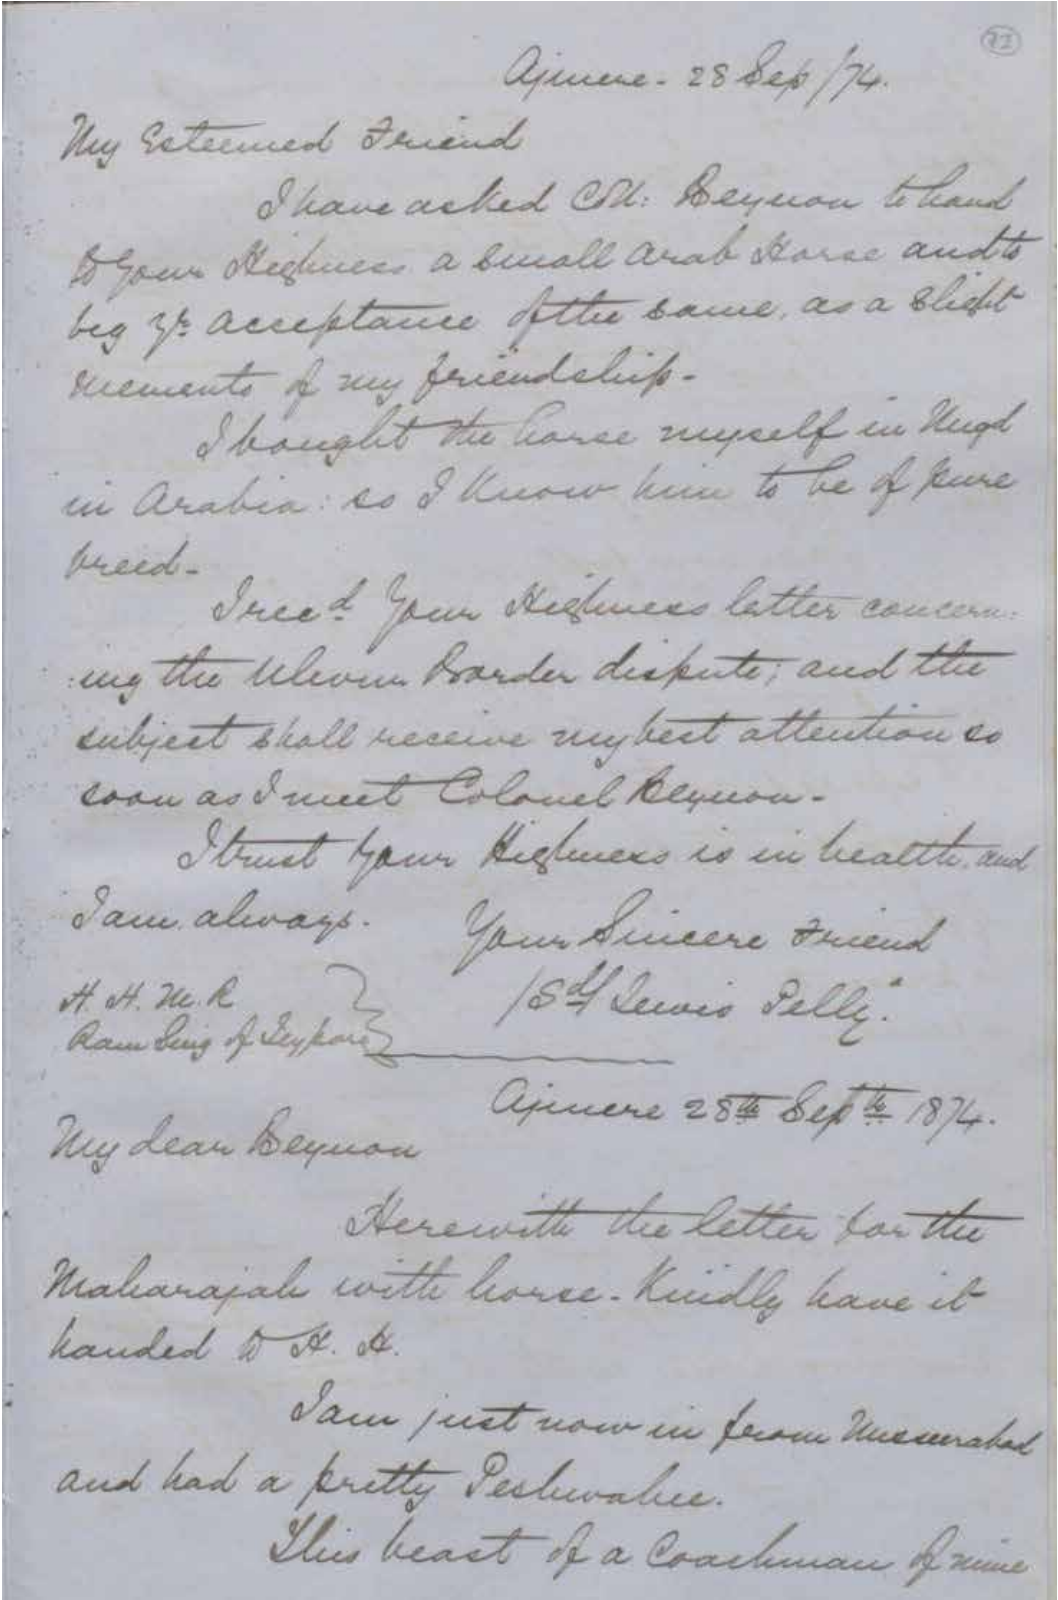 72
Ajmere - 28 Sep /74.
My Esteemed Friend
I have asked Col: Beynon to hand
to Your Highness a small Arab Horse and to
beg Yr. acceptance of the same, as a slight
memento of my friendship -
I bought the horse myself in Nugd
in Arabia: so I know him to be of pure
breed -
I recd. Your Highness letter concern:
:ing the Ulwur Border dispute; and the
subject shall receive my best attention so
soon as I meet Colonel Beynon -
I trust Your Highness is in health, and
I am always.
Your Sincere Friend
/Sd/ Lewis Pelly.
H. H. M. R
Ram Sing of Jeypore
Ajmere 28th Septr. 1874.
My dear Beynon
Herewith the letter for the
Maharajah with horse - Kindly have it
handed to H. H.
I am just now in from Nusseerabad
and had a pretty Peshwahee.
This beast of a Coachman of mine